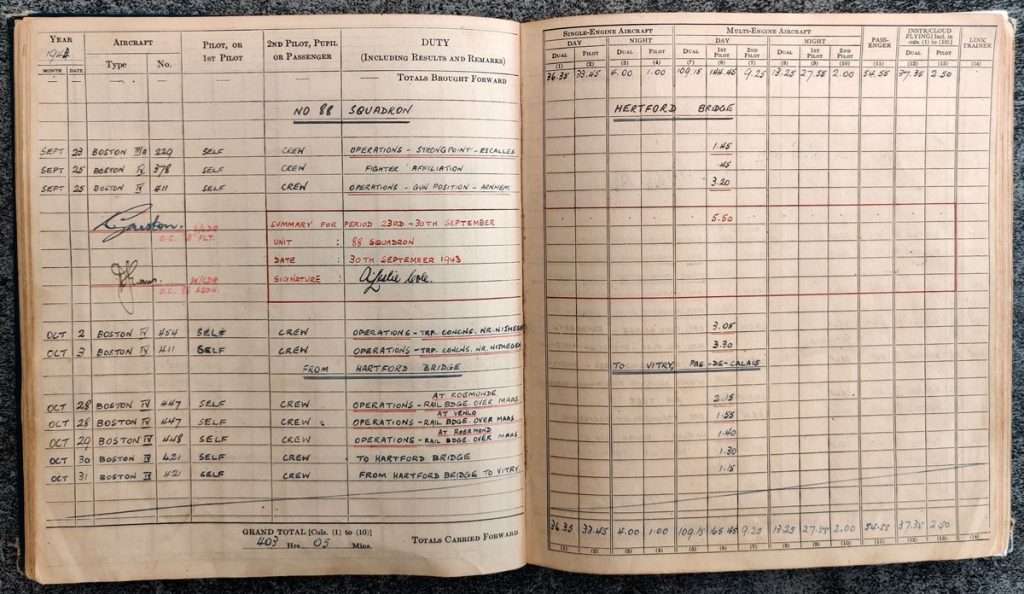 YEAR AIRCRAFT PILOT, OR 1ST PILOT 2ND PILOT, PUPIL OR PASSENGER DUTY (INCLUDING RESULTS AND REMARKS) SINGLE-ENGINE AIRCRAFT MULTI-ENGINE AIRCRAFT PASSENGER INSTR/CLOUD FLYING [Incl. in cols. (1) to (10)] LINK TRAINER
194 Type No. DAY NIGHT DAY NIGHT
MONTH DATE DUAL PILOT DUAL PILOT DUAL 1ST PILOT 2ND PILOT DUAL 1ST PILOT 2ND PILOT DUAL PILOT
(1) (2) (3) (4) (5) (6) (7) (8) (9) (10) (11) (12) (13) (14)
TOTALS BROUGHT FORWARD 36.35 33.45 4.00 1.00 109.15 144.45 9.25 13.25 27.55 2.00 54.55 37.35 2.50
NO 88 SQUADRON HERTFORD BRIDGE
SEPT 23 BOSTON IIIA 220 SELF CREW OPERATIONS - STRONGPOINT - 1.45
SEPT 25 BOSTON IV 378 SELF CREW FIGHTER AFFILIATION .45
SEPT 25 BOSTON IV 411 SELF CREW OPERATIONS - GUN POSITION - ARNHEM 3.20
SUMMARY FOR PERIOD 23RD - 30TH SEPTEMBER 5.50
S/LDR
O.C. FLT.
UNIT : 88 SQUADRON
DATE : 30TH SEPTEMBER 1943
W/CDR SIGNATURE :
O.C. SQDN.
OCT 2 BOSTON IV 454 SELF CREW OPERATIONS - TRP. CONCNS. NR. NIJMEGEN 3.05
OCT 3 BOSTON IV 411 SELF CREW OPERATIONS - TRP. CONCNS. NR. NIJMEGEN 3.30
FROM HARTFORD BRIDGE TO VITRY, PAS-DE-CALAIS
AT ROERMONDE
OCT 28 BOSTON IV 447 SELF CREW OPERATIONS - RAIL BDGE OVER MAAS 2.15
AT VENLO
OCT 28 BOSTON IV 447 SELF CREW OPERATIONS - RAIL BDGE OVER MAAS 1.55
AT ROERMOND
OCT 29 BOSTON IV 448 SELF CREW OPERATIONS - RAIL BDGE OVER MAAS 1.40
OCT 30 BOSTON IV 421 SELF CREW TO HARTFORD BRIDGE 1.30
OCT 31 BOSTON IV 421 SELF CREW FROM HARTFORD BRIDGE TO VITRY 1.15
GRAND TOTAL [Cols. (1) to (10)] TOTALS CARRIED FORWARD 36.35 33.45 4.00 1.00 109.15 9.25 13.25 27.55 2.00 54.55 37.35 2.50
403 Hrs. 05 Mins.
(1) (2) (3) (4) (5) (6) (7) (8) (9) (10) (11) (12) (13) (14)